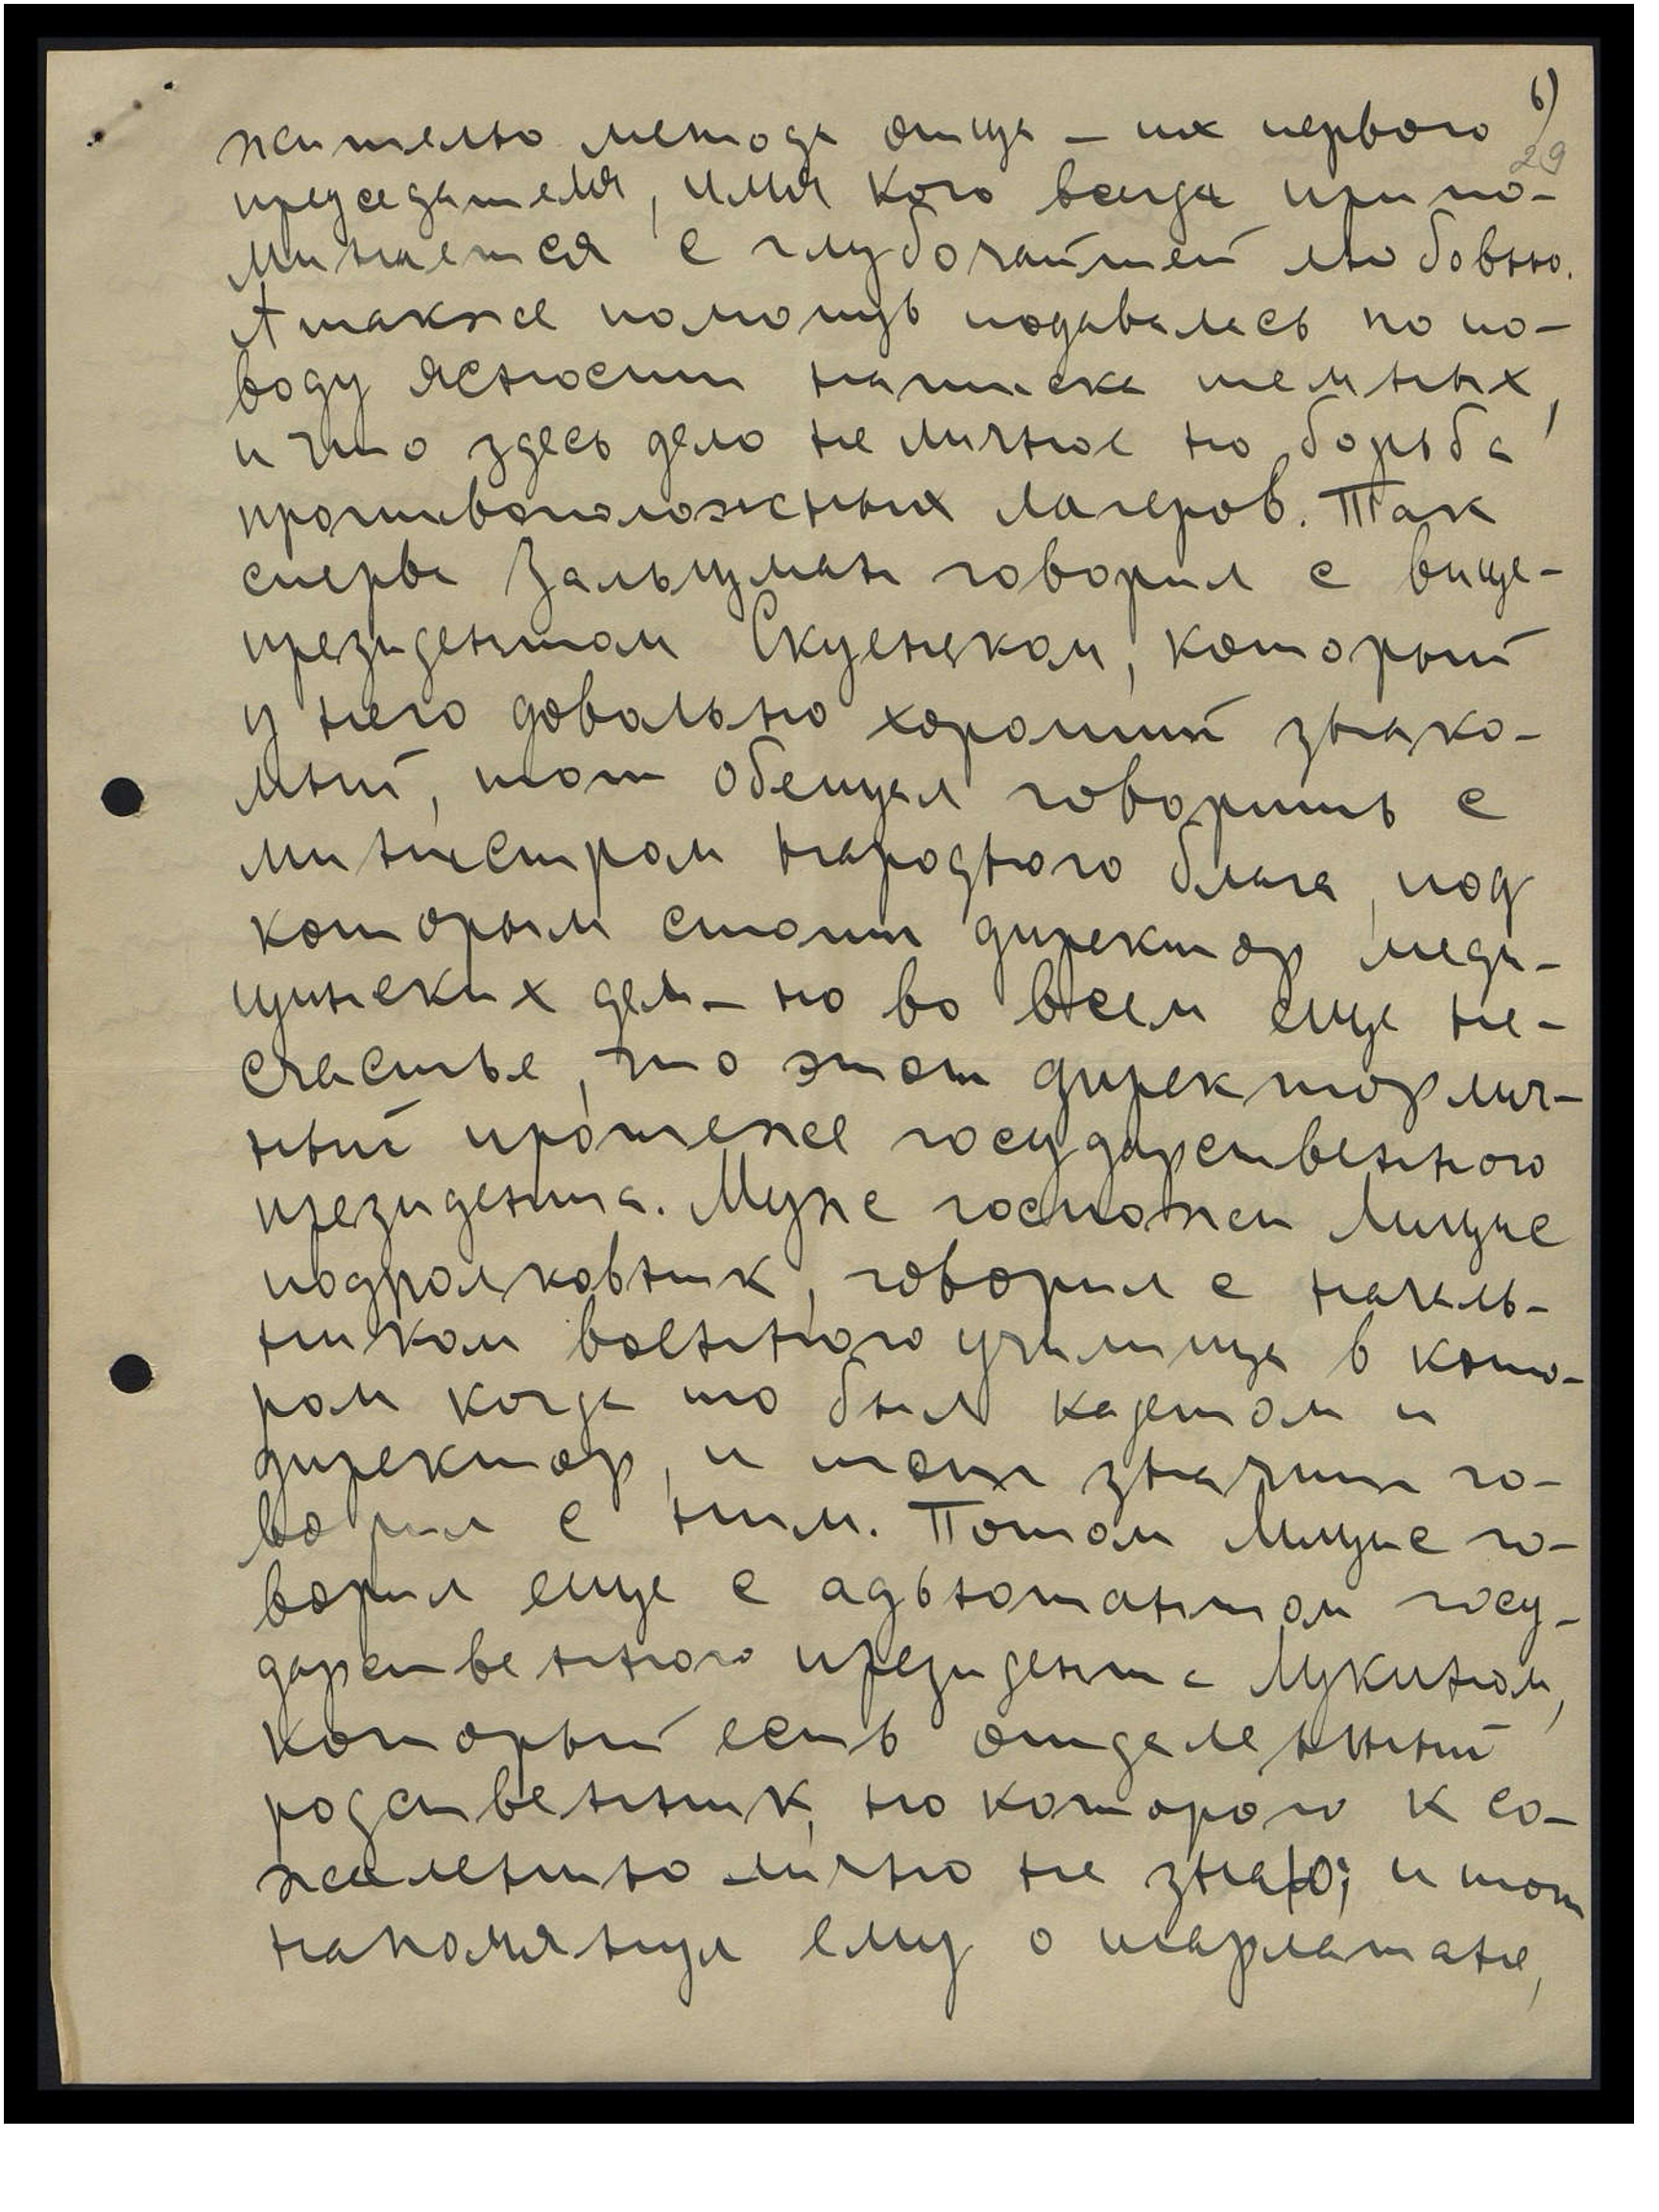 6)
29
жителю метода отца – их первого
председателя, имя кого всегда припо-
минается с глубочайшей любовью.
А также помощь подавалась по по-
воду ясности натиска темных,
и что здесь дело не личное но борьба
противоположных лагеров. Так
сперва Зальцман говорил с вице-
президентом Скуенеком, который
у него довольно хороший знако-
мый, тот обещал говорить с
министром народного блага, под
которым стоит директор меди-
цинских дел – но во всем еще не-
счастье, что этот директор лич-
ный протеже государственного
президента. Муж госпожи Лицис
подполковник, говорил с началь-
ником военного училища в кото-
ром когда то был кадетом и
директор, и тот значит го-
ворил с ним. Потом Лицис го-
ворил еще с адъютантом госу-
дарственного президента Лукином,
который есть отделенный
родственник, но которого к со-
жалению лично не знаю; и тот
напомянул ему о шарлатане,